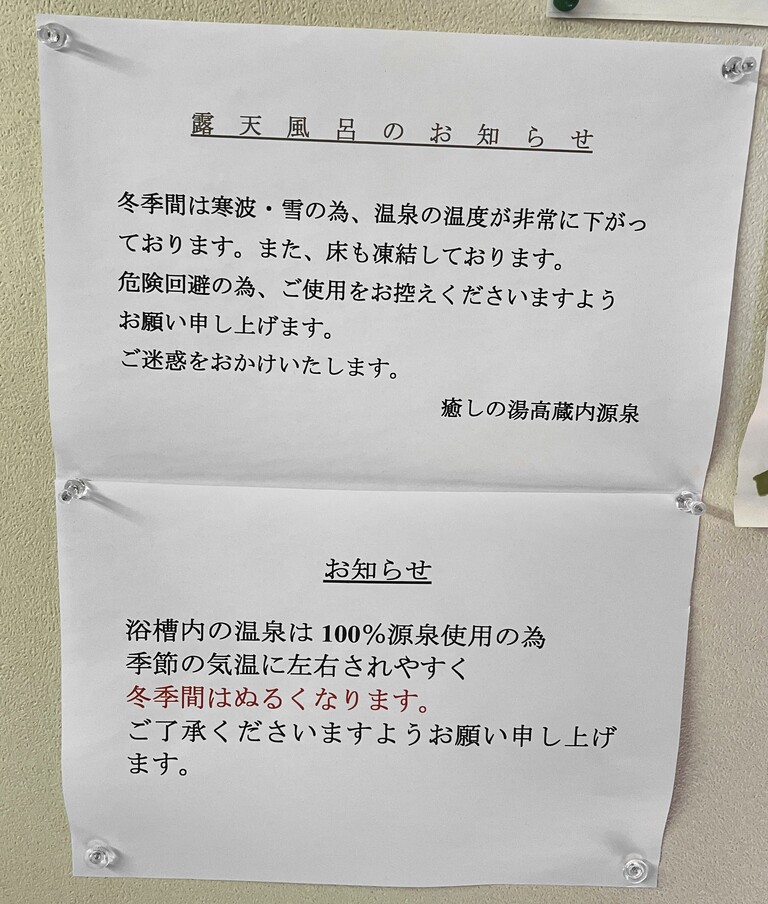 露天風呂のお知らせ
冬季間は寒波・雪の為、温泉の温度が非常に下がっ
ております。また、床も凍結しております。
危険回避の為、ご使用をお控えくださいますよう
お願い申し上げます。
ご迷惑をおかけいたします。
癒しの湯高蔵内源泉
お知らせ
浴槽内の温泉は 100%源泉使用の為
季節の気温に左右されやすく
冬季間はぬるくなります。
ご了承くださいますようお願い申し上げ
ます。